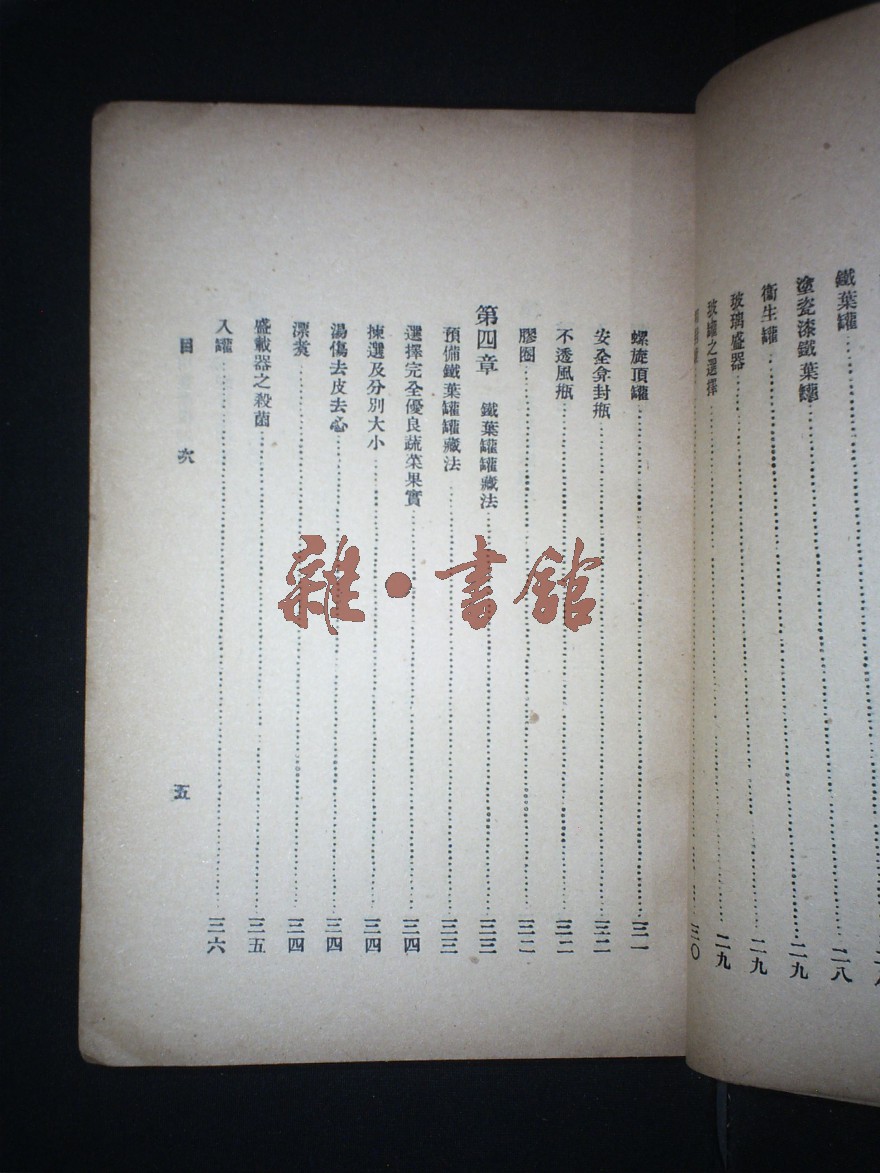 鐵葉罐……二八
塗瓷漆鐵葉罐……二九
衛生罐……二九
玻璃盛器……二九
玻罐之選擇……二九
三〇
螺旋頂罐……三一
安全拿封瓶……三二
不透風瓶……三二
膠圈……三二
第四章 鐵葉罐罐藏法……三三
預備鐵葉罐罐藏法……三三
選擇完全優良蔬菜果實……三四
揀選及分別大小……三四
湯燙去皮去心……三四
漂煑……三四
盛載器之殺菌……三五
入罐……三六
目次
五
雜·書館